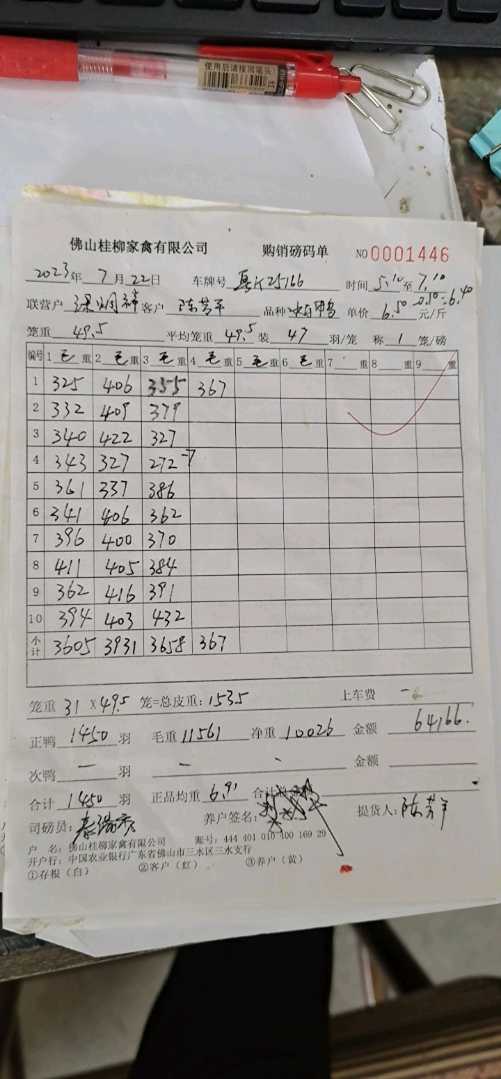 使用后请按回笔头
佛山桂柳家禽有限公司 购销磅码单 NO 0001446
2023年 7月22日 车牌号 时间 5.10 至 7.10
联营户 客户 陈芳平 品种 单价 6.50 -0.50=6.40 元/斤
笼重 49.5 平均笼重 49.5 装 47 羽/笼 称 1 笼/磅
编号 1 毛 重 2 毛 重 3 毛 重 4 毛 重 5 毛 重 6 毛 重 7 重 8 重 9 重
1 325 406 355 367
2 332 409 379
3 340 422 327
4 343 327 272 -7
5 361 337 386
6 341 406 362
7 396 400 370
8 411 405 384
9 362 416 391
10 394 403 432
小计 3605 3931 3658 367
笼重 31 x 49.5 笼=总皮重: 1535 上车费 —
正鸭 1450 羽 毛重 11561 净重 10026 金额 64166.
次鸭 — 羽 — 金额
合计 1450 羽 正品均重 6.91 合计
司磅员: 养户签名: 提货人: 陈芳平
户 名: 佛山桂柳家禽有限公司 账号: 444 401 010 400 169 29
开户行: 中国农业银行广东省佛山市三水区三水支行
①存根(白) ②客户(红) ③养户(黄)